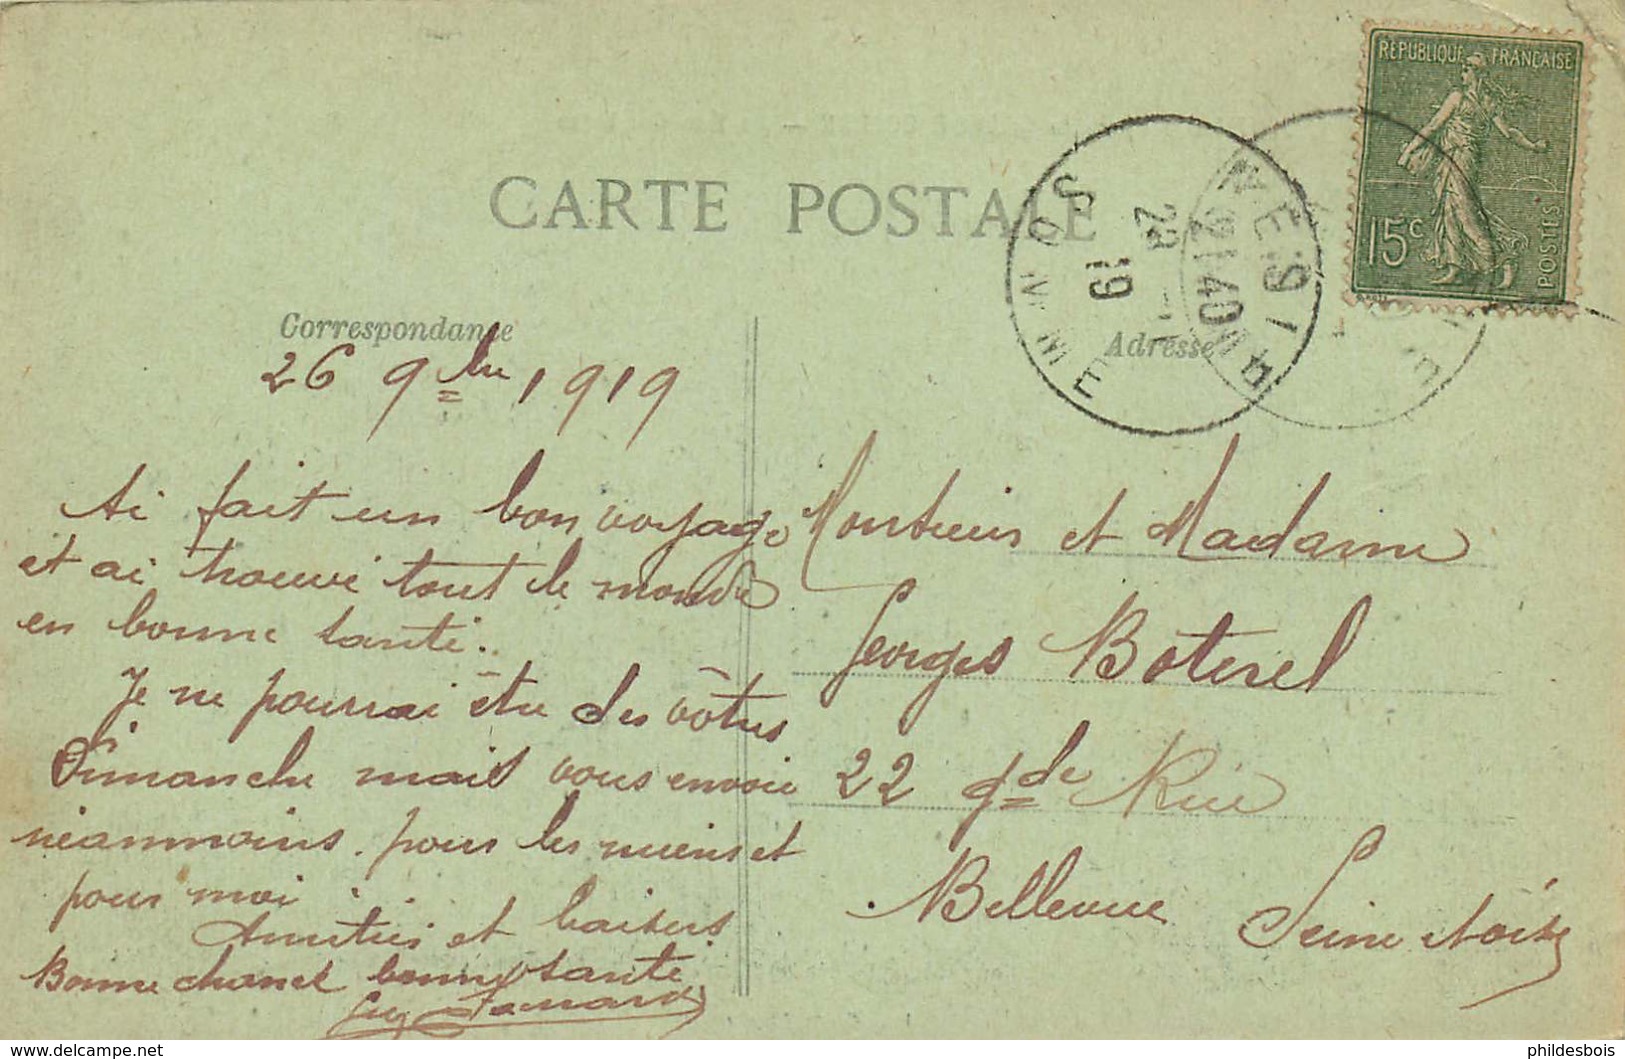 RÉPUBLIQUE FRANÇAISE
15c
POSTES
CARTE POSTALE
SOMME
21 40
19
Correspondance
Adresse
26 9bre 1919
Ai fait un bon voyage
et ai trouvé tout le monde
en bonne santé.
Je ne pourrai être des vôtres
Dimanche mais vous envoie
néanmoins pour les miens et
pour moi
Amitiés et baisers
Bonne chance bonne santé
Monsieur et Madame
Georges Boterel
22 gde Rue
Bellevue
Seine et Oise
www.delcampe.net
phildesbois